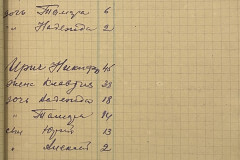 дочь Тамара 6
" Надежда 2
Юрий 13
жена Клавдия 23
дочь Надежда 18
" Тамара 14
сын Юрий 13
" Алексей 2